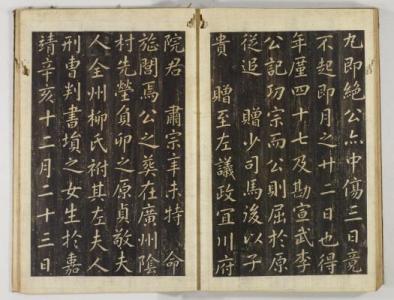 九即絶公亦中傷三日竟
不起即月之廿二日也得
年厪四十七及勘宣武李
公記功宗而公則屈於原
從追 贈少司馬後以子
貴 贈至左議政宜川府
院君 肅宗辛未特 命
旌閭焉公之葬在廣州陰
村先塋負卯之原貞敬夫
人全州柳氏祔其左夫人
刑曹判書塤之女生於嘉
靖辛亥十二月二十三日